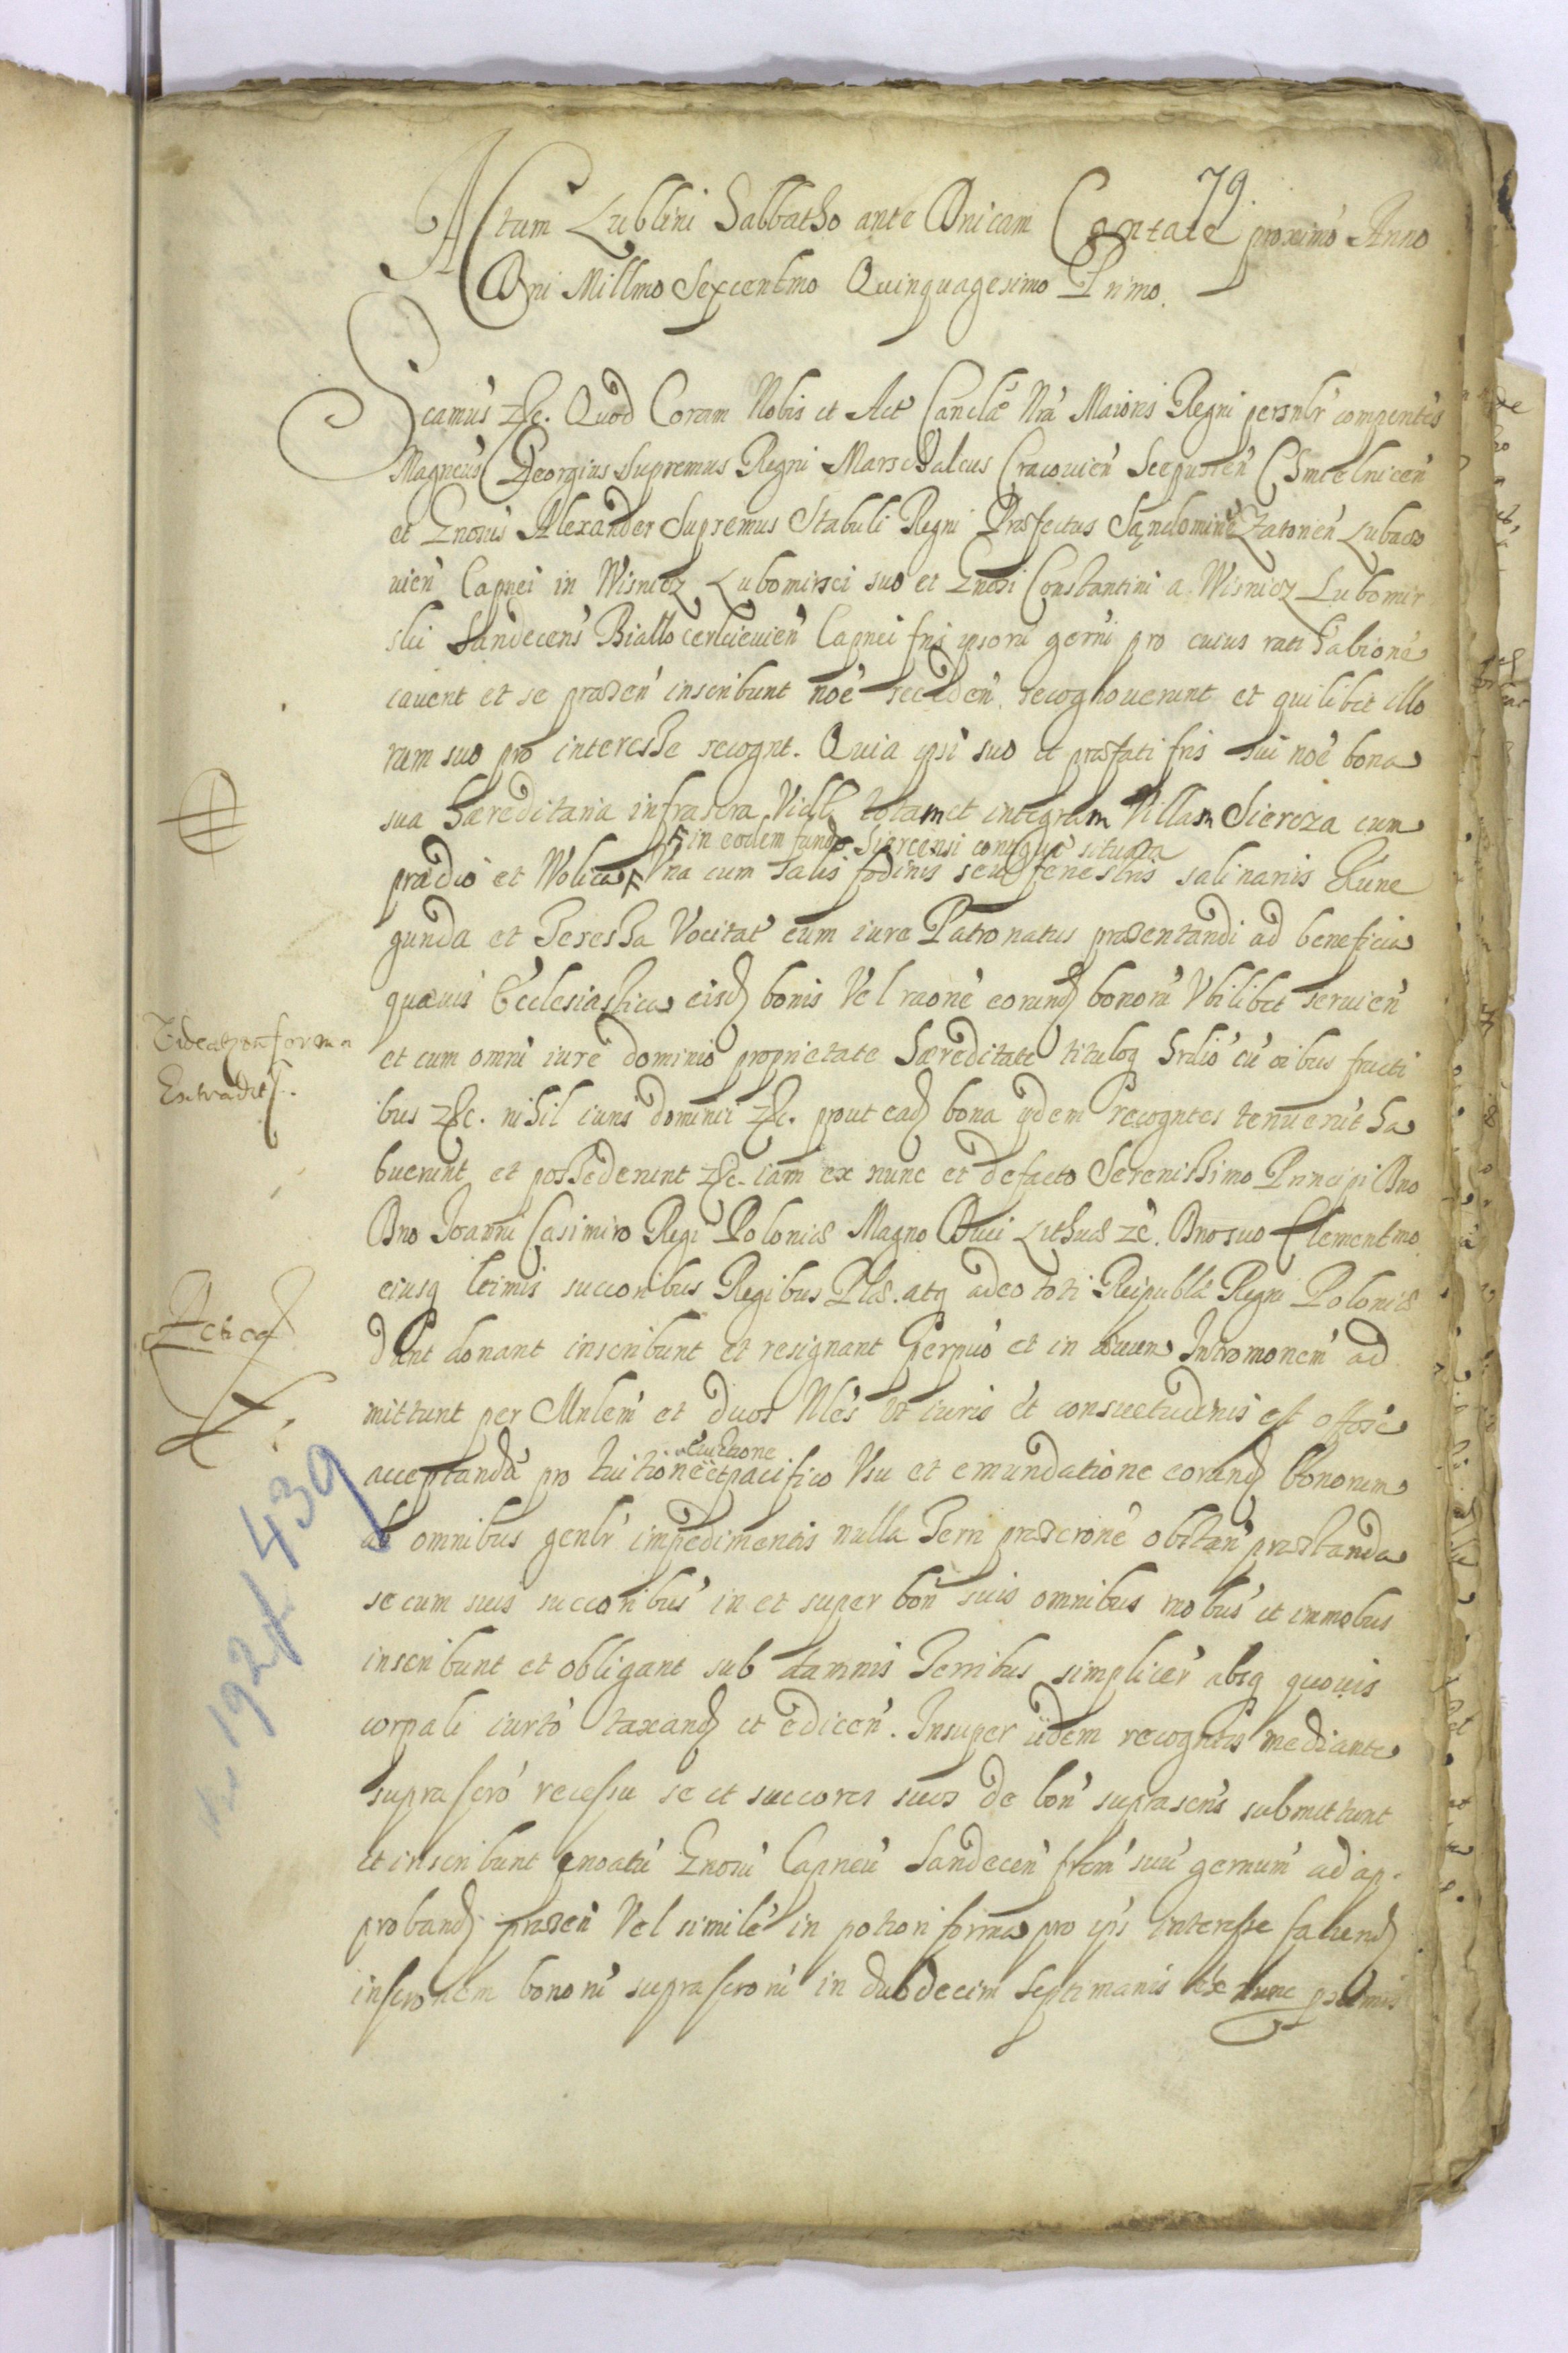 79.
Actum Lublini Sabbatho ante Dnicam Cantate proximo Anno
Dni Millmo Sexcentmo Quinquagesimo Primo.
Scamus &c. Quod Coram Nobis et Act Canclae Nrae Maioris Regni persnlr compentes
Magncus Georgius Supremus Regni Marschalcus Cracouien Scepusien Chmielnicen
et Gnosus Alexander Supremus Stabuli Regni Praefectus Sandomirien Zatorien Lubaczo
uien Capnei in Wisnicz Lubomirsci suo et Gnosi Constantini a Wisnicz Lubomir
ski Sandecens Biallocerkieuien Capnei fris ipsoru gerni pro cuius rati habione
cauent et se praesen inscribunt noe receden. recognouerunt et quilibet illo
rum suo pro interesse recognt. Quia ipsi suo et praefati fris sui noe bona
sua haereditaria infrascra Vidlt totam et integram Villam Siercza cum
in eodem fundo Siercensi contigue situata
praedio et Wolica Vna cum salis fodinis seu fenestris salinariis Kune
gunda et Teressa Vocitat cum iure Patronatus praesentandi ad beneficia
quaeuis Ecclesiastica eisd bonis Vel raone eorund bonoru Vbilibet seruien
et cum omni iure dominio proprietate haereditate tituloq hrdlio cu oibus fructi
bus &c. nihil iuris dominii &c. prout ead bona ijdem recogntes tenuerut ha
buerunt et possederunt &c. iam ex nunc et de facto Serenissimo Principi Dno
Dno Joanni Casimiro Regi Poloniae Magno Duci Lithuae &c. Dno suo Clementmo
eiusq letimis succoribus Regibus Plae. atq adeo toti Reipublae Regni Poloniae
dant donant inscribunt et resignant Perpuo et in Intromonem ad
mittunt per Mnlem et duos Nles vt iuris et consuetudinis est
euictione
acceptanda pro tuitione et pacifico Vsu et emundatione eorund bonorum
ab omnibus genlr impedimentis nulla Terri praescrone obstan praestanda
se cum suis succoribus in et super bon suis omnibus mobus et immobus
inscribunt et obligant sub damnis Terribus simplicer absq quouis
corpali iurto taxand et edicen. Insuper iidem recogntes mediante
suprascro recessu se et succores suos de bon suprascris submittunt
et inscribunt Gnosu Capneu Sandecen frem suu gernum ad ap-
proband praesen Vel simile in potiori forma pro ips interesse faciend
inscronem bonoru suprascroru in duodecim septimanis nunc
Extradit.
439
1921